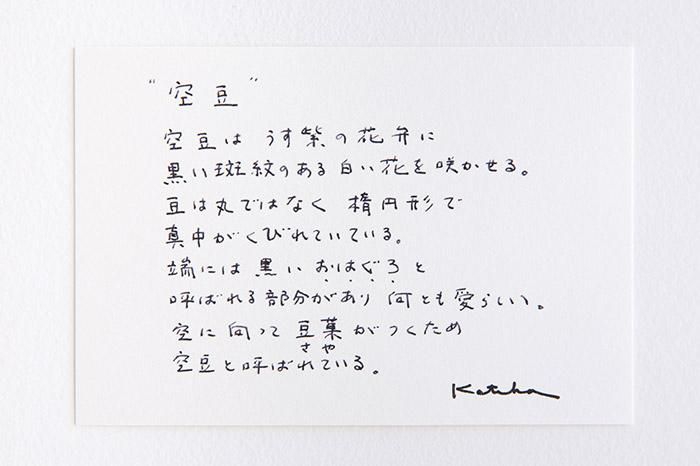 “空豆”
空豆は うす紫の花弁に
黒い斑紋のある白い花を咲かせる。
豆は丸ではなく 楕円形で
真中がくびれていている。
端には黒いおはぐろと
呼ばれる部分があり 何とも愛らしい。
空に向って豆菓がつくため
さや
空豆と呼ばれている。